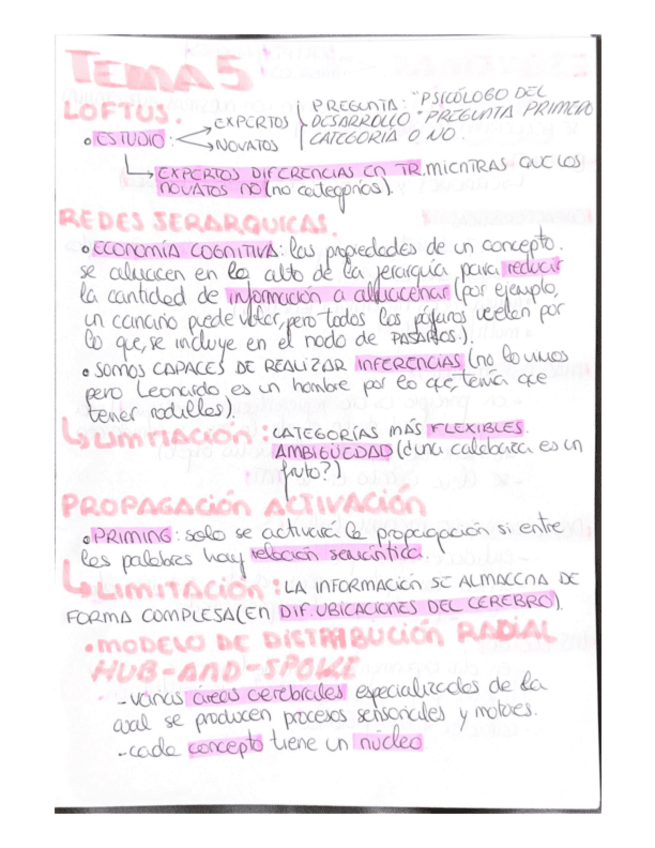 TEMA 5
LOFTUS.
• ESTUDIO: → EXPERTOS → NOVATOS
PREGUNTA: "PSICÓLOGO DEL
DESARROLLO" PREGUNTA PRIMERO
CATEGORIA O NO.
↳ EXPERTOS DIFERENCIAS EN TR. MIENTRAS QUE LOS
NOVATOS NO (no categorias).
REDES JERARQUICAS.
• ECONOMÍA COGNITIVA: las propiedades de un concepto.
se almacen en lo alto de la jerarquía para reducir
la cantidad de información a almacenar (por ejemplo,
un canario puede volar, pero todos los pájaros vuelan por
lo que, se incluye en el nodo de PASAROS.).
• SOMOS CAPACES DE REALIZAR INFERENCIAS (no lo vimos
pero Leonardo es un hombre por lo que, tenía que
tener rodillas).
↳ LIMITACIÓN: CATEGORÍAS MÁS FLEXIBLES.
AMBIGÜEDAD (¿una calabaza es un
fruto?)
PROPAGACIÓN ACTIVACIÓN
• PRIMING: solo se activará la propagación si entre
las palabras hay relación semántica.
↳ LIMITACIÓN: LA INFORMACIÓN SE ALMACENA DE
FORMA COMPLESA (EN DIF. UBICACIONES DEL CEREBRO).
• MODELO DE DISTRIBUCIÓN RADIAL
HUB-AND-SPOKE
- varias áreas cerebrales especializadas de la
cual se producen procesos sensoriales y motores.
- cada concepto tiene un núcleo